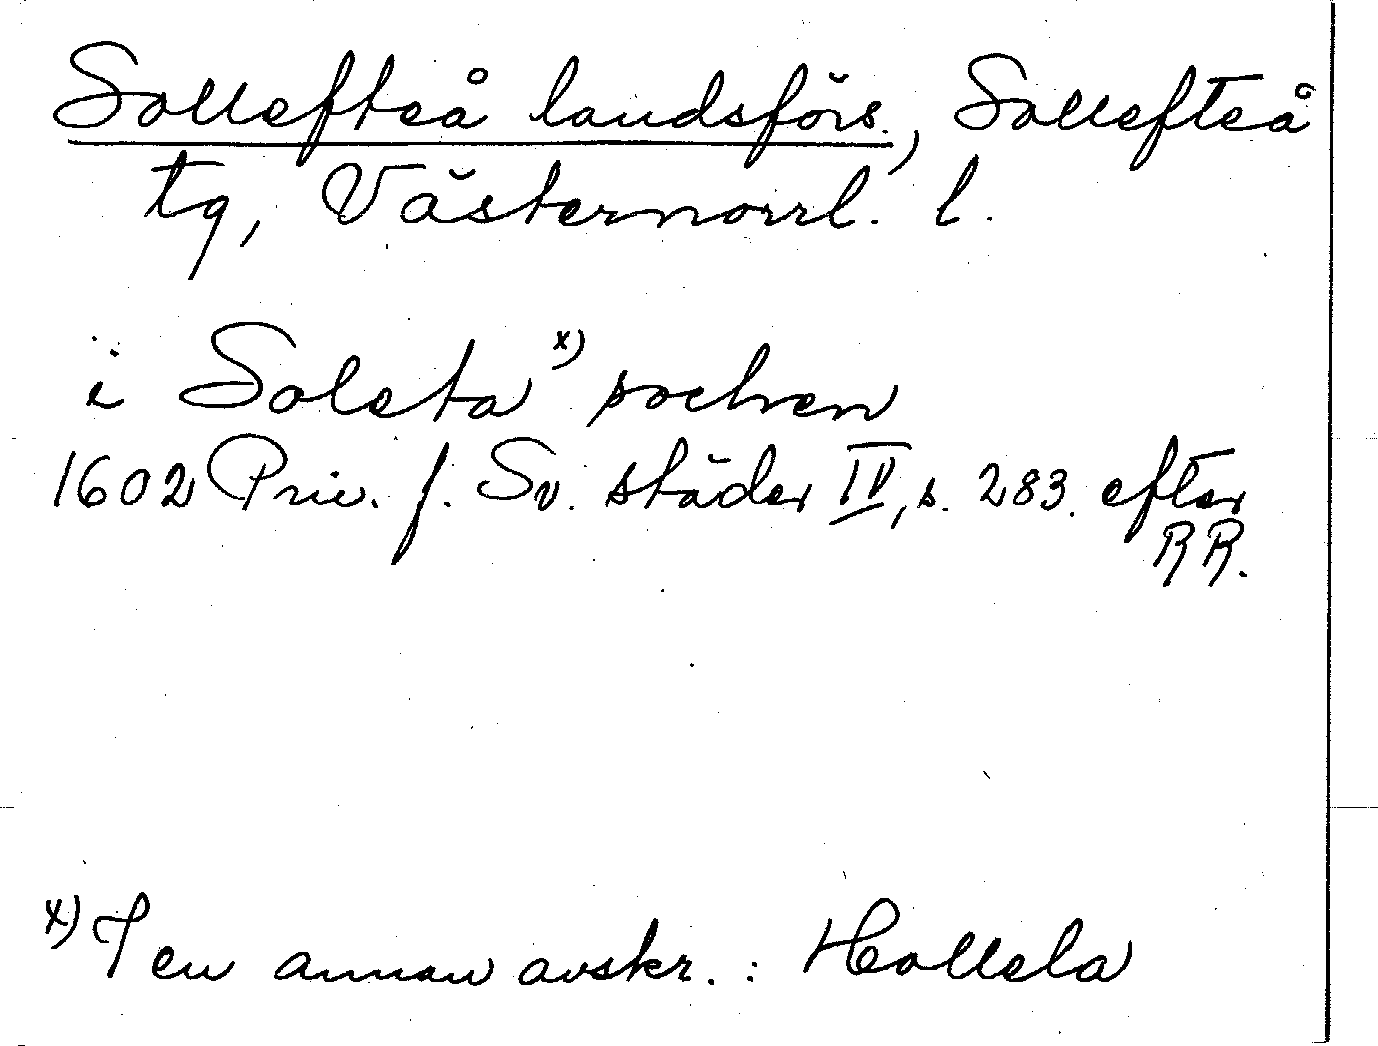 Sollefteå landsförs., Sollefteå
tg, Västernorrl. l.
i Soleta x) sochen
1602 Priv. f. Sv. städer IV, s. 283. efter
RR.
x) I en annan avskr. : Hollela